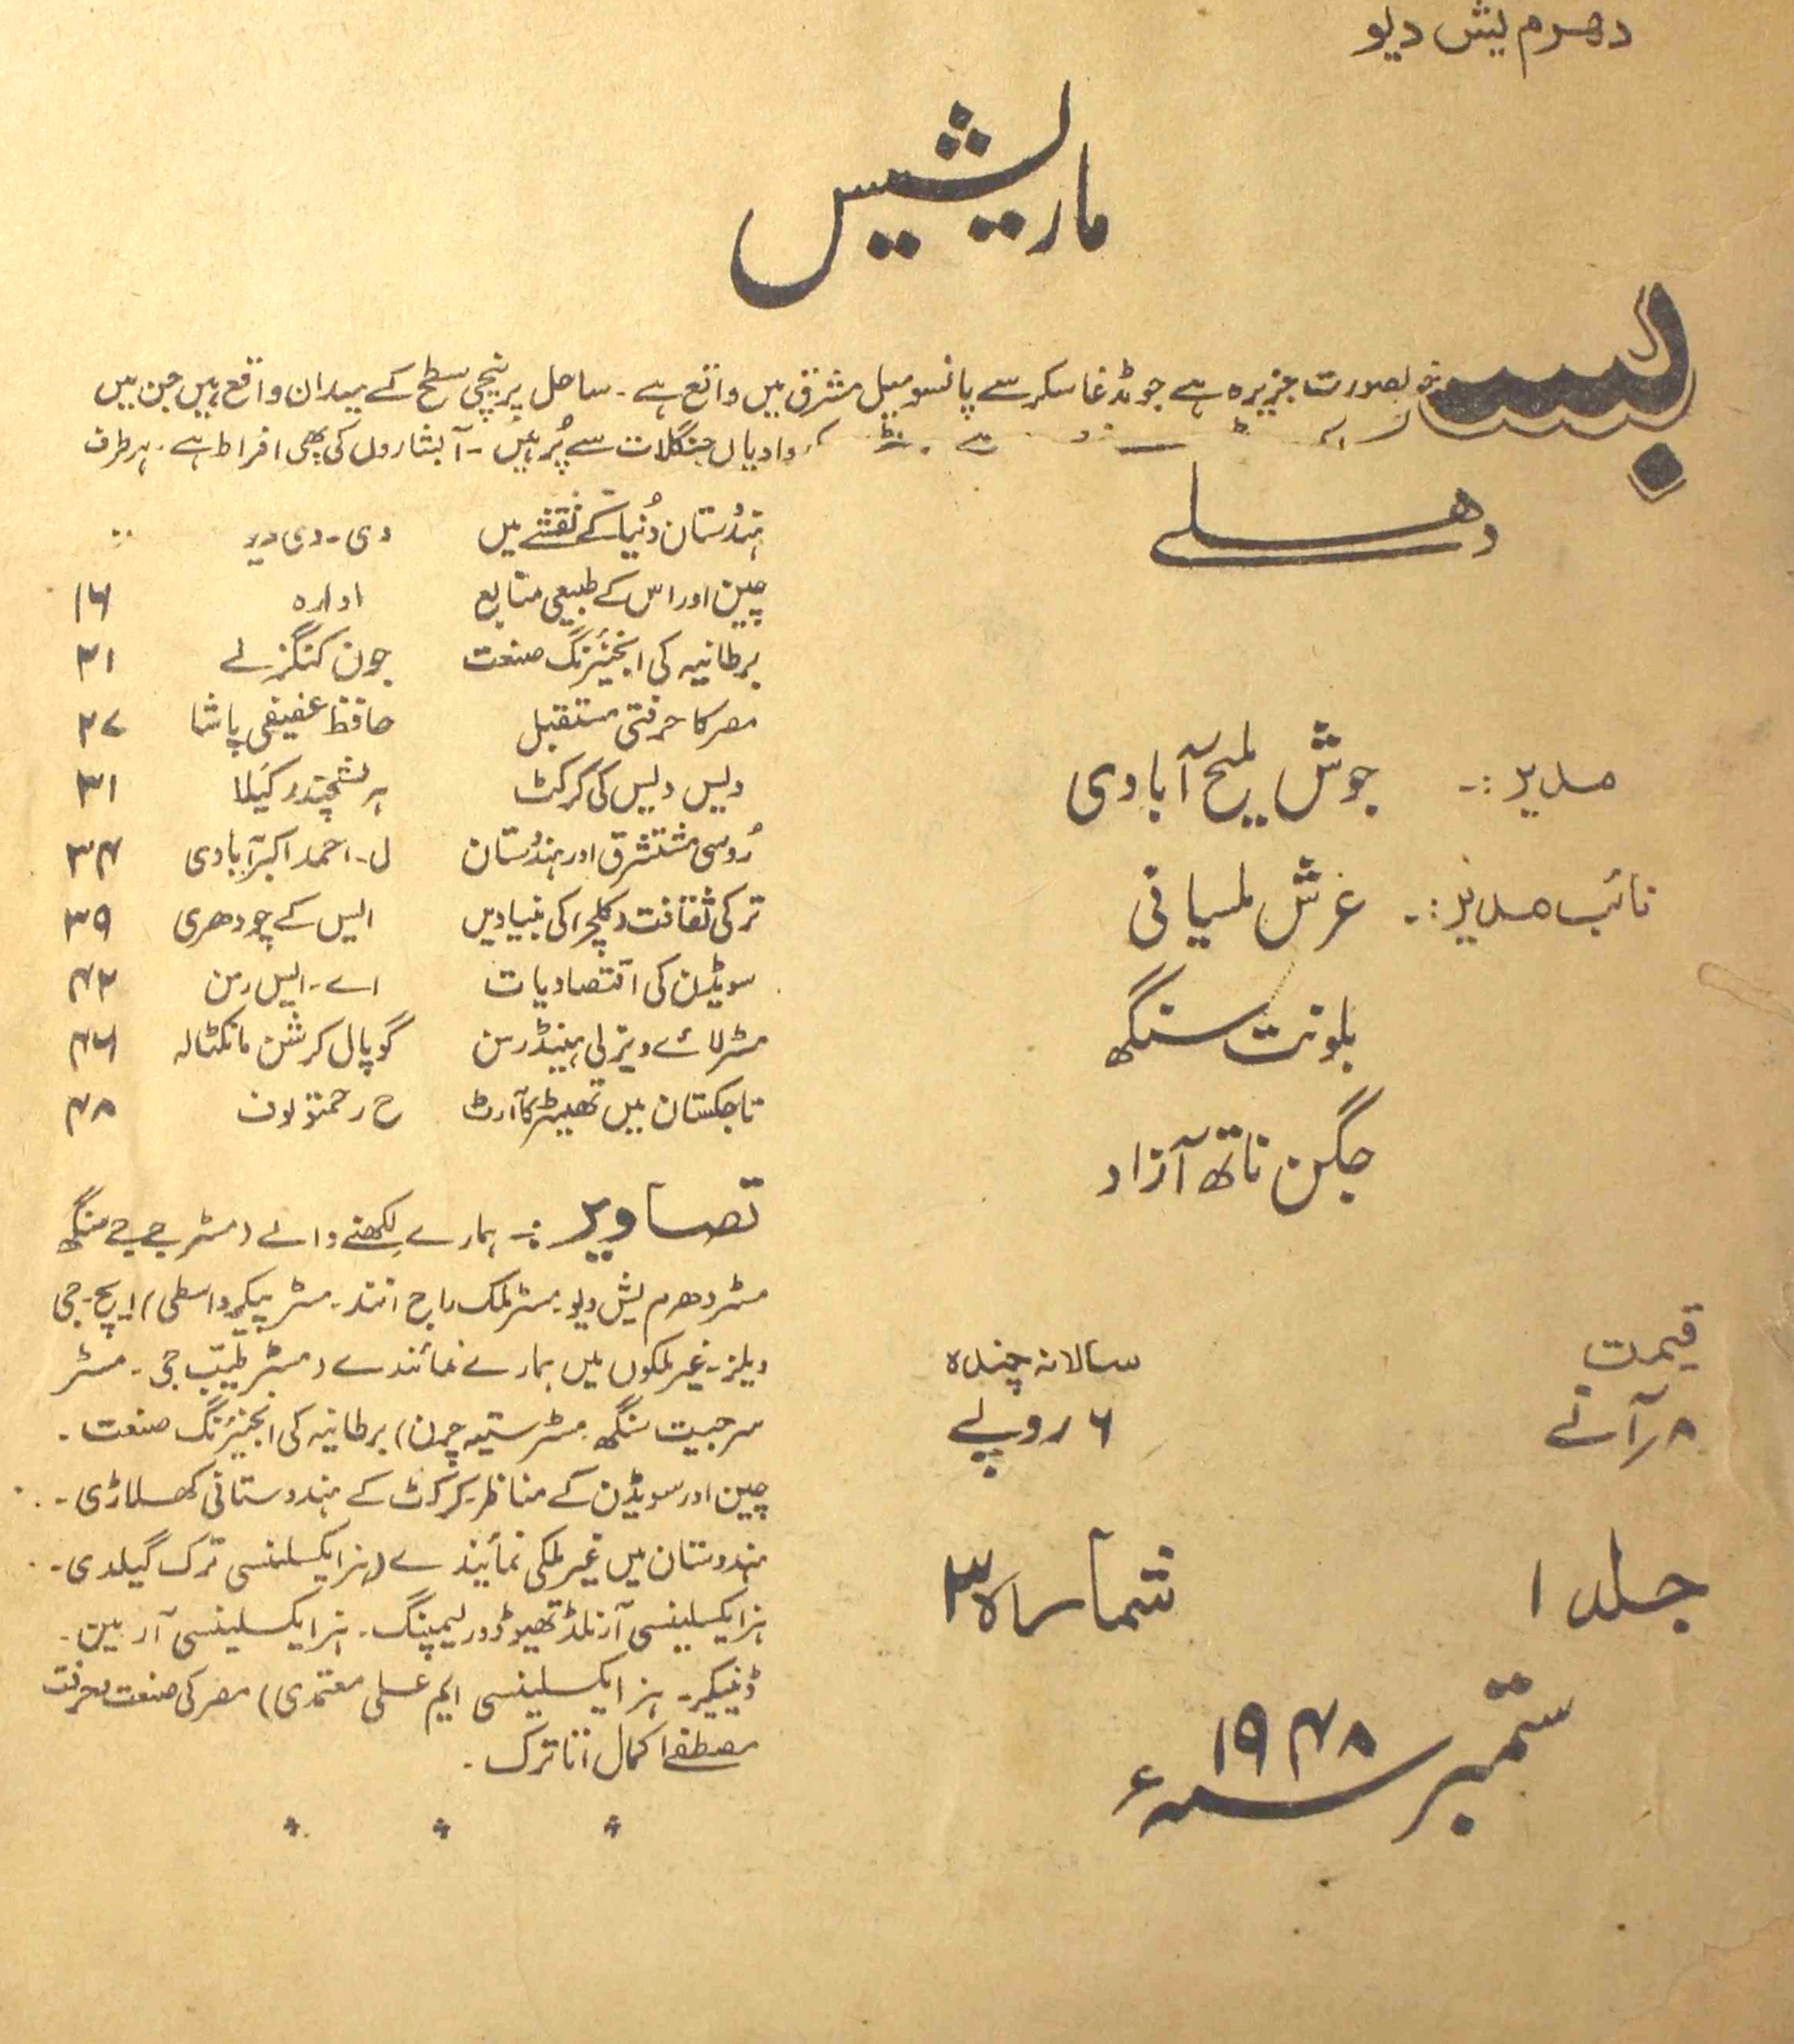 دھرم یش دیو
ماریشیس
خوبصورت جزیرہ ہے جو مڈغاسکر سے پانسو میل مشرق میں واقع ہے۔ ساحل پر نیچی سطح کے میدان واقع ہیں جن میں
وادیاں جنگلات سے پُر ہیں۔ آبشاروں کی بھی افراط ہے۔ ہر طرف
دھلے
مدیر :۔ جوش ملیح آبادی
نائب مدیر :۔ عرش ملسیانی
بلونت سنگھ
جگن ناتھ آزاد
قیمت
۸؍ آنے
سالانہ چندہ
۶ روپے
جلد ۱
شمارہ ۳
ستمبر ۱۹۴۸ء
ہندُستان دُنیا کے نقشے میں
چین اور اس کے طبیعی منابع ادارہ ۱۶
برطانیہ کی انجنیئرنگ صنعت جون کنگزلے ۲۱
مصر کا حرفتی مستقبل حافظ عفیفی پاشا ۲۷
دیس دیس کی کرکٹ ہریشچندر کیَلا ۳۱
رُوسی مستشرق اور ہندُستان ل۔ احمد اکبرآبادی ۳۴
ترکی ثقافت (کلچر) کی بنیادیں ایس کے چودھری ۳۹
سویڈن کی اقتصادیات اے۔ ایس رمن ۴۲
مسٹر لائے ویزلی ہینڈرسن گوپال کرشن مانکٹالہ ۴۶
تاجکستان میں تھیٹر کا آرٹ ح رحمتولوف ۴۸
تصاویر :۔ ہمارے لکھنے والے (مسٹر جے جے سنگھ
مسٹر دھرم یش دیو۔ مسٹر ملک راج انند۔ مسٹر پیکرو اسطی) ایچ۔ جی
ویلز۔ غیر ملکوں میں ہمارے نمائندے (مسٹر طیّب جی۔ مسٹر
سرجیت سنگھ۔ مسٹر ستیہ چرن) برطانیہ کی انجنیئرنگ صنعت۔
چین اور سویڈن کے مناظر۔ کرکٹ کے ہندوستانی کھلاڑی۔
ہندوستان میں غیر ملکی نمائیندے (ہزایکسلنسی ترک گیلدی۔
ہزایکسلینسی آرنلڈ تھیوڈور لیمپنگ۔ ہزایکسلینسی آر بین۔
ڈنیکیر۔ ہز ایکسلینسی ایم علی معتمدی) مصر کی صنعت حرفت
مصطفےٰ کمال اتاترک۔